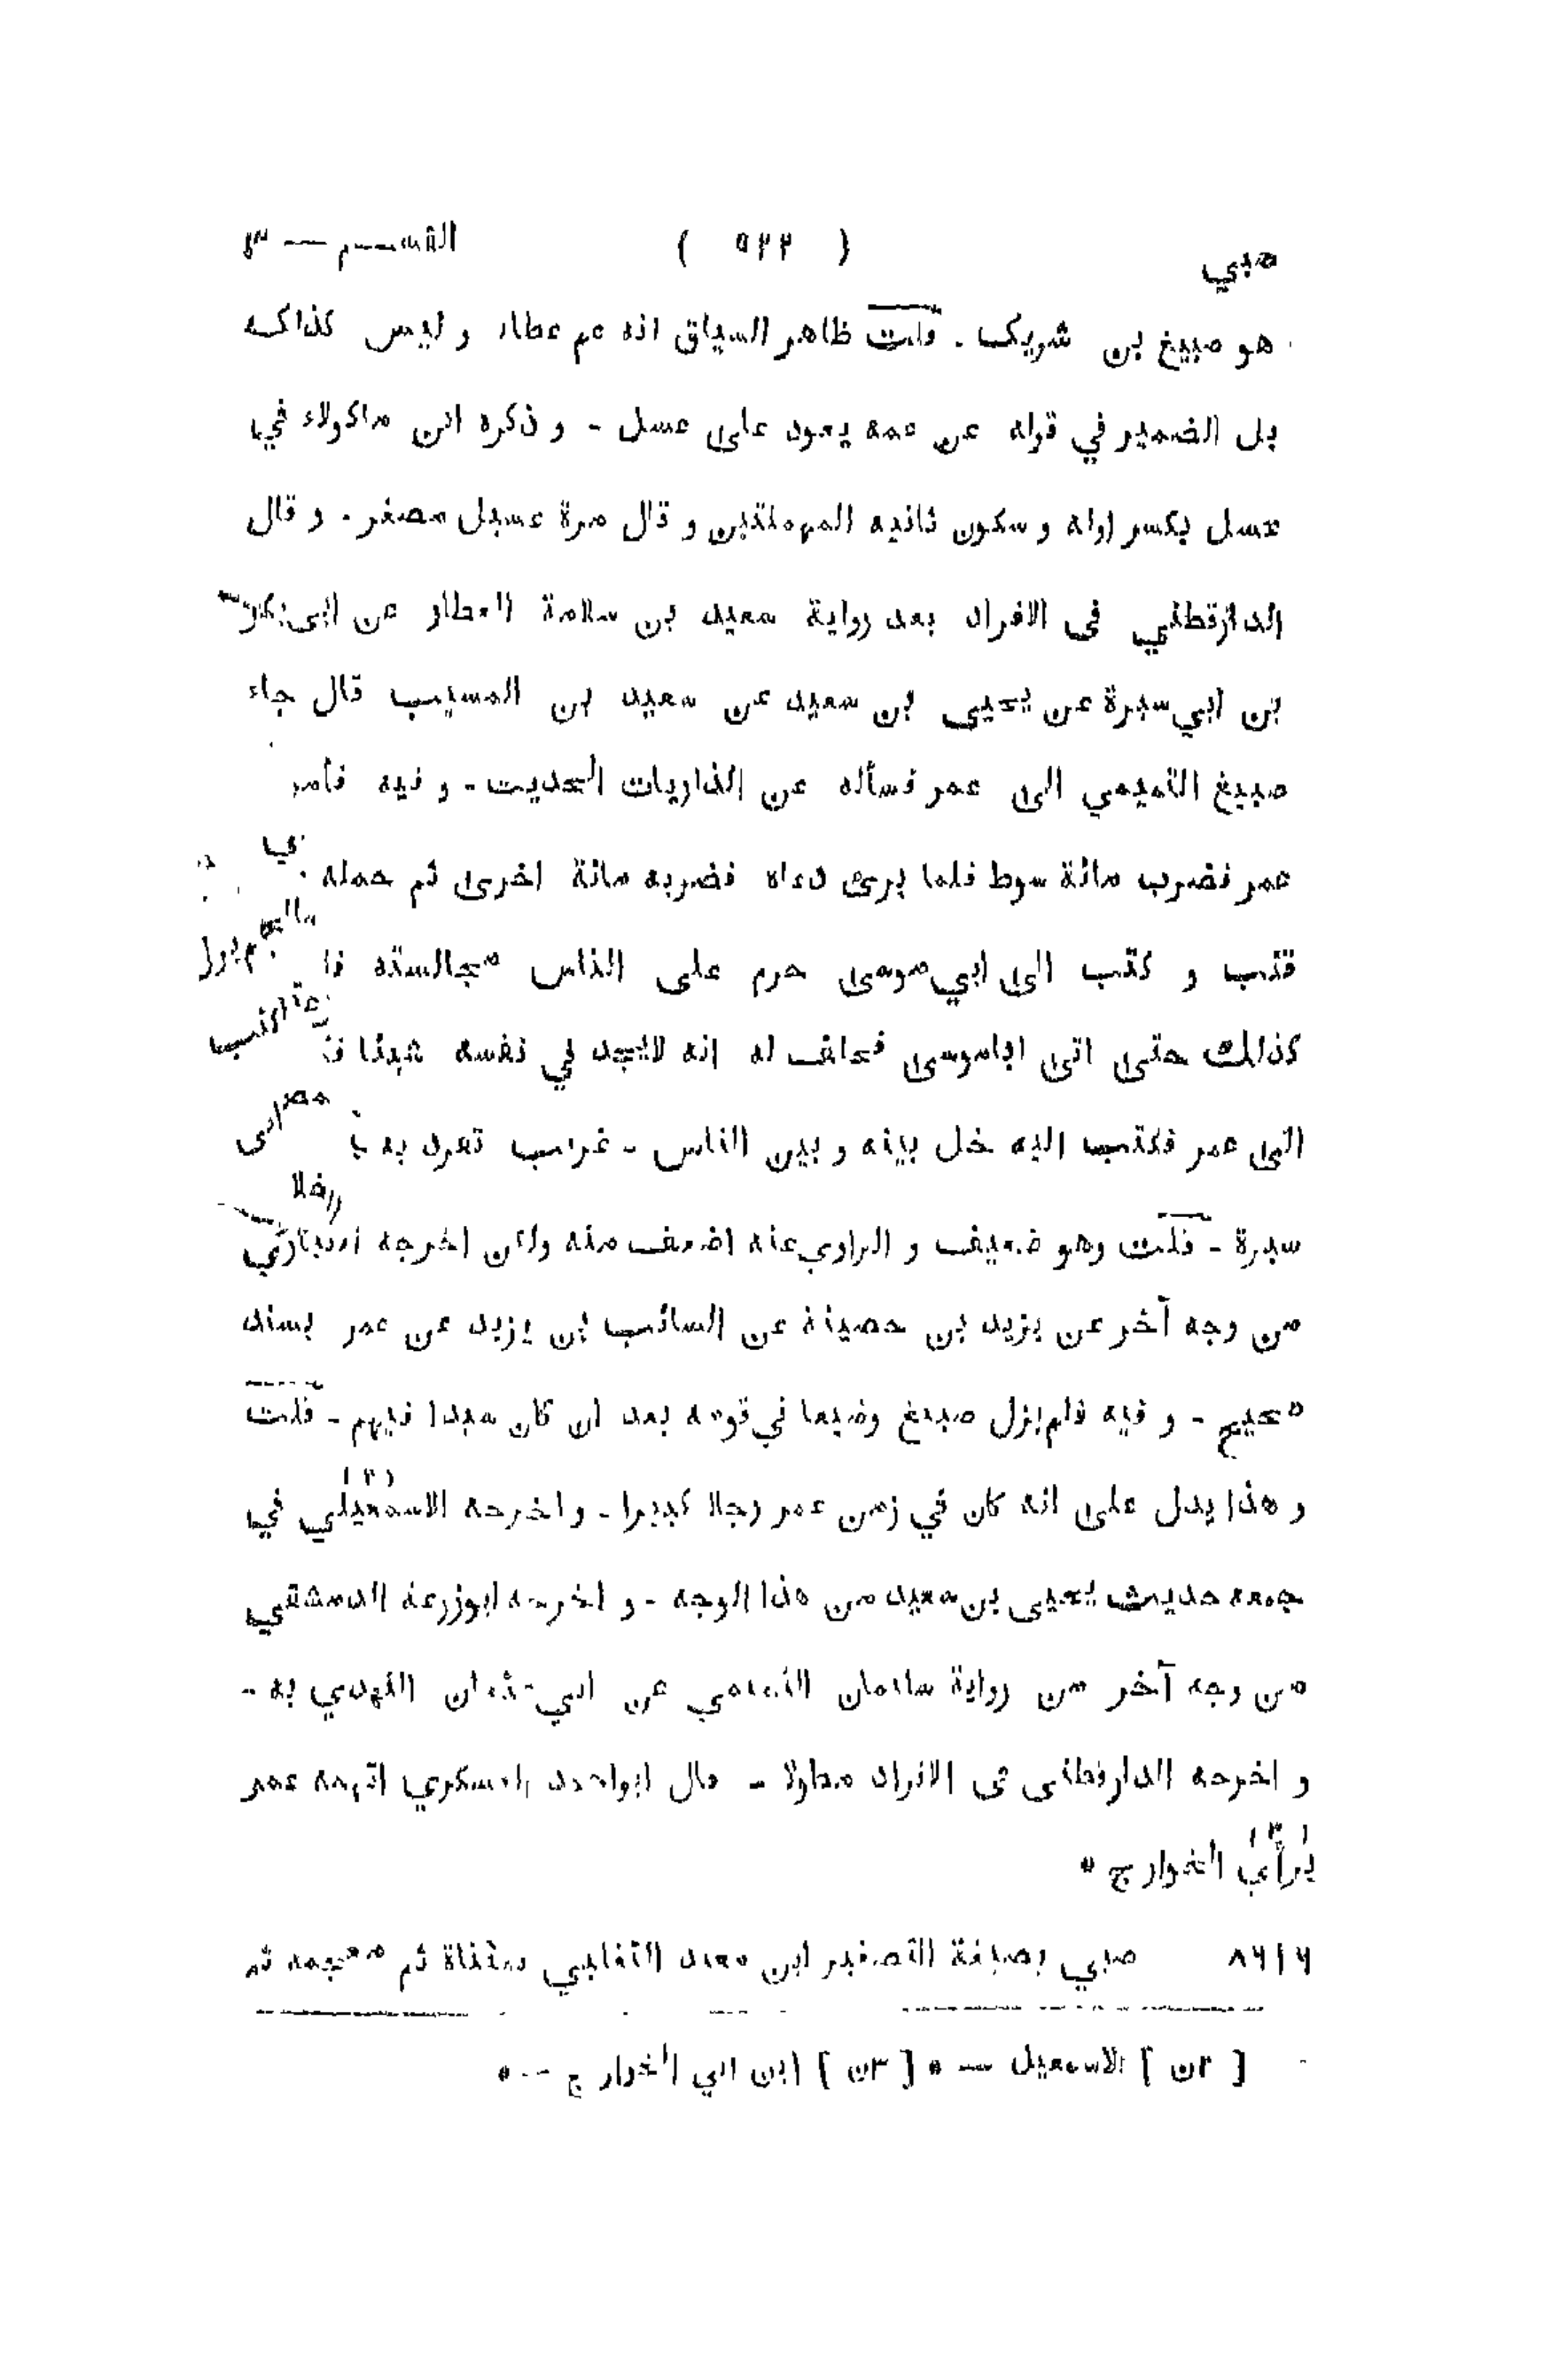 صبي ( ٥٢٢ ) القسم — ٣
هو صبيغ بن شريك . قلت ظاهر السياق انه عم عطاء و ليس كذاك
بل الضمير في قوله عن عمه يعود على عسل - و ذكره ابن ماكولاء في
عسل بكسر اوله و سكون ثانيه المهملتين و قال مرة عسيل مصغر . و قال
الدارقطني فى الافراد بعد رواية سعيد بن سلامة العطار عن ابى بكر
بن ابي سبرة عن يحيى بن سعيد عن سعيد بن المسيب قال جاء
صبيغ التميمي الى عمر فسأله عن الذاريات الحديث - و فيه فأمر
عمر فضرب مائة سوط فلما برئ دعاه فضربه مائة اخرى ثم حمله
قتب و كتب الى ابي موسى حرم على الناس مجالسته فلم يزل
كذلك حتى اتى اباموسى فحلف له انه لايجد في نفسه شيئا فكتب
الى عمر فكتب اليه خل بينه و بين الناس - غريب تفرد به
سبرة - قلت وهو ضعيف و الراوي عنه اضعف منه ولكن اخرجه
من وجه آخر عن يزيد بن خصيفة عن السائب بن يزيد عن عمر بسند
صحيح - و فيه فلم يزل صبيغ وضيعا في قومه بعد ان كان سيدا فيهم - قلت
و هذا يدل على انه كان في زمن عمر رجلا كبيرا - و اخرجه الاسمعيلي (٢) في
جمعه حديث يحيى بن سعيد من هذا الوجه - و اخرجه ابوزرعة الدمشقي
من وجه آخر من رواية سليمان التيمي عن ابي عثمان النهدي به -
و اخرجه الدارقطنى فى الافراد مطولا - قال ابواحمد العسكري اتهمه عمر
برأي (٣) الخوارج *
٨٦١٦ صبي بصيغة التصغير ابن معبد التغلبي بمثناة ثم معجمه ثم
[ ٢ن ] الاسمعيل — * [ ٣ن ] ابن ابي الخوارج — *